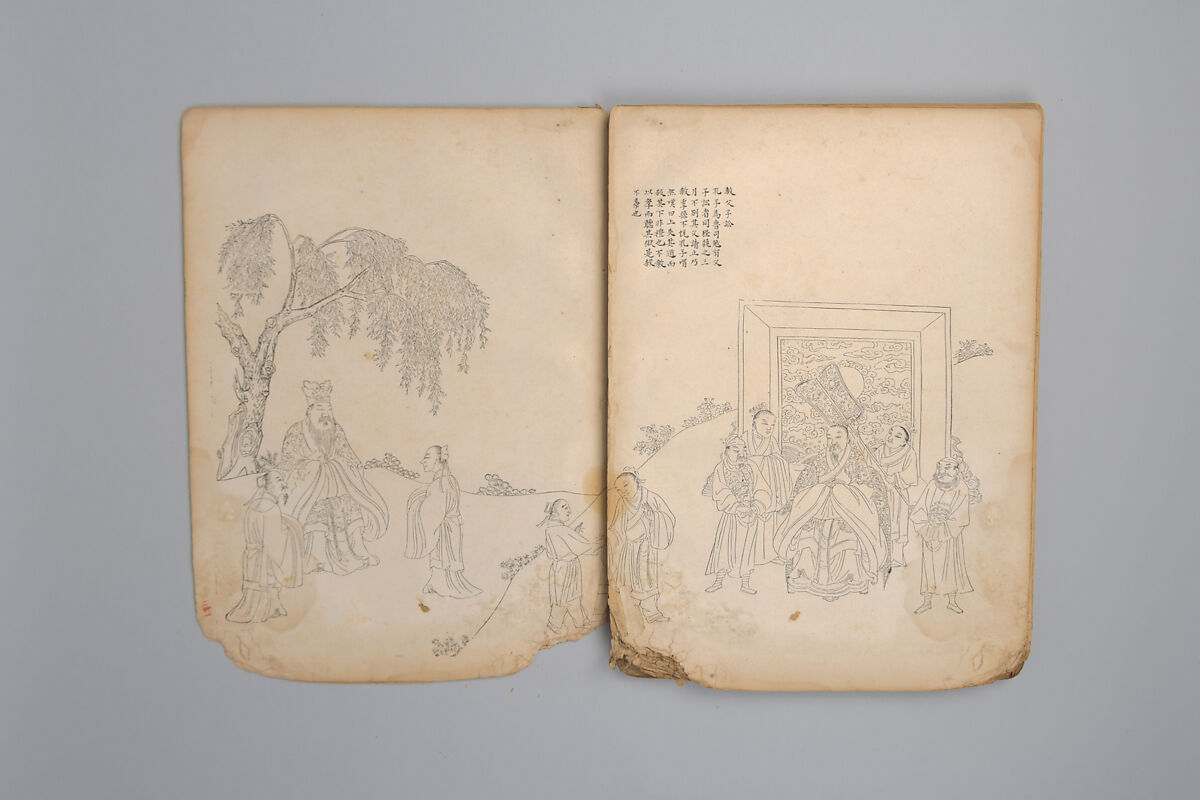 赦父子訟
孔子為魯司寇有父
子訟者同狴執之三
月不別其父請止乃
赦季孫不悅孔子喟
然嘆曰上失其道而
殺其下非理也不教
以孝而聽其獄是殺
不辜也